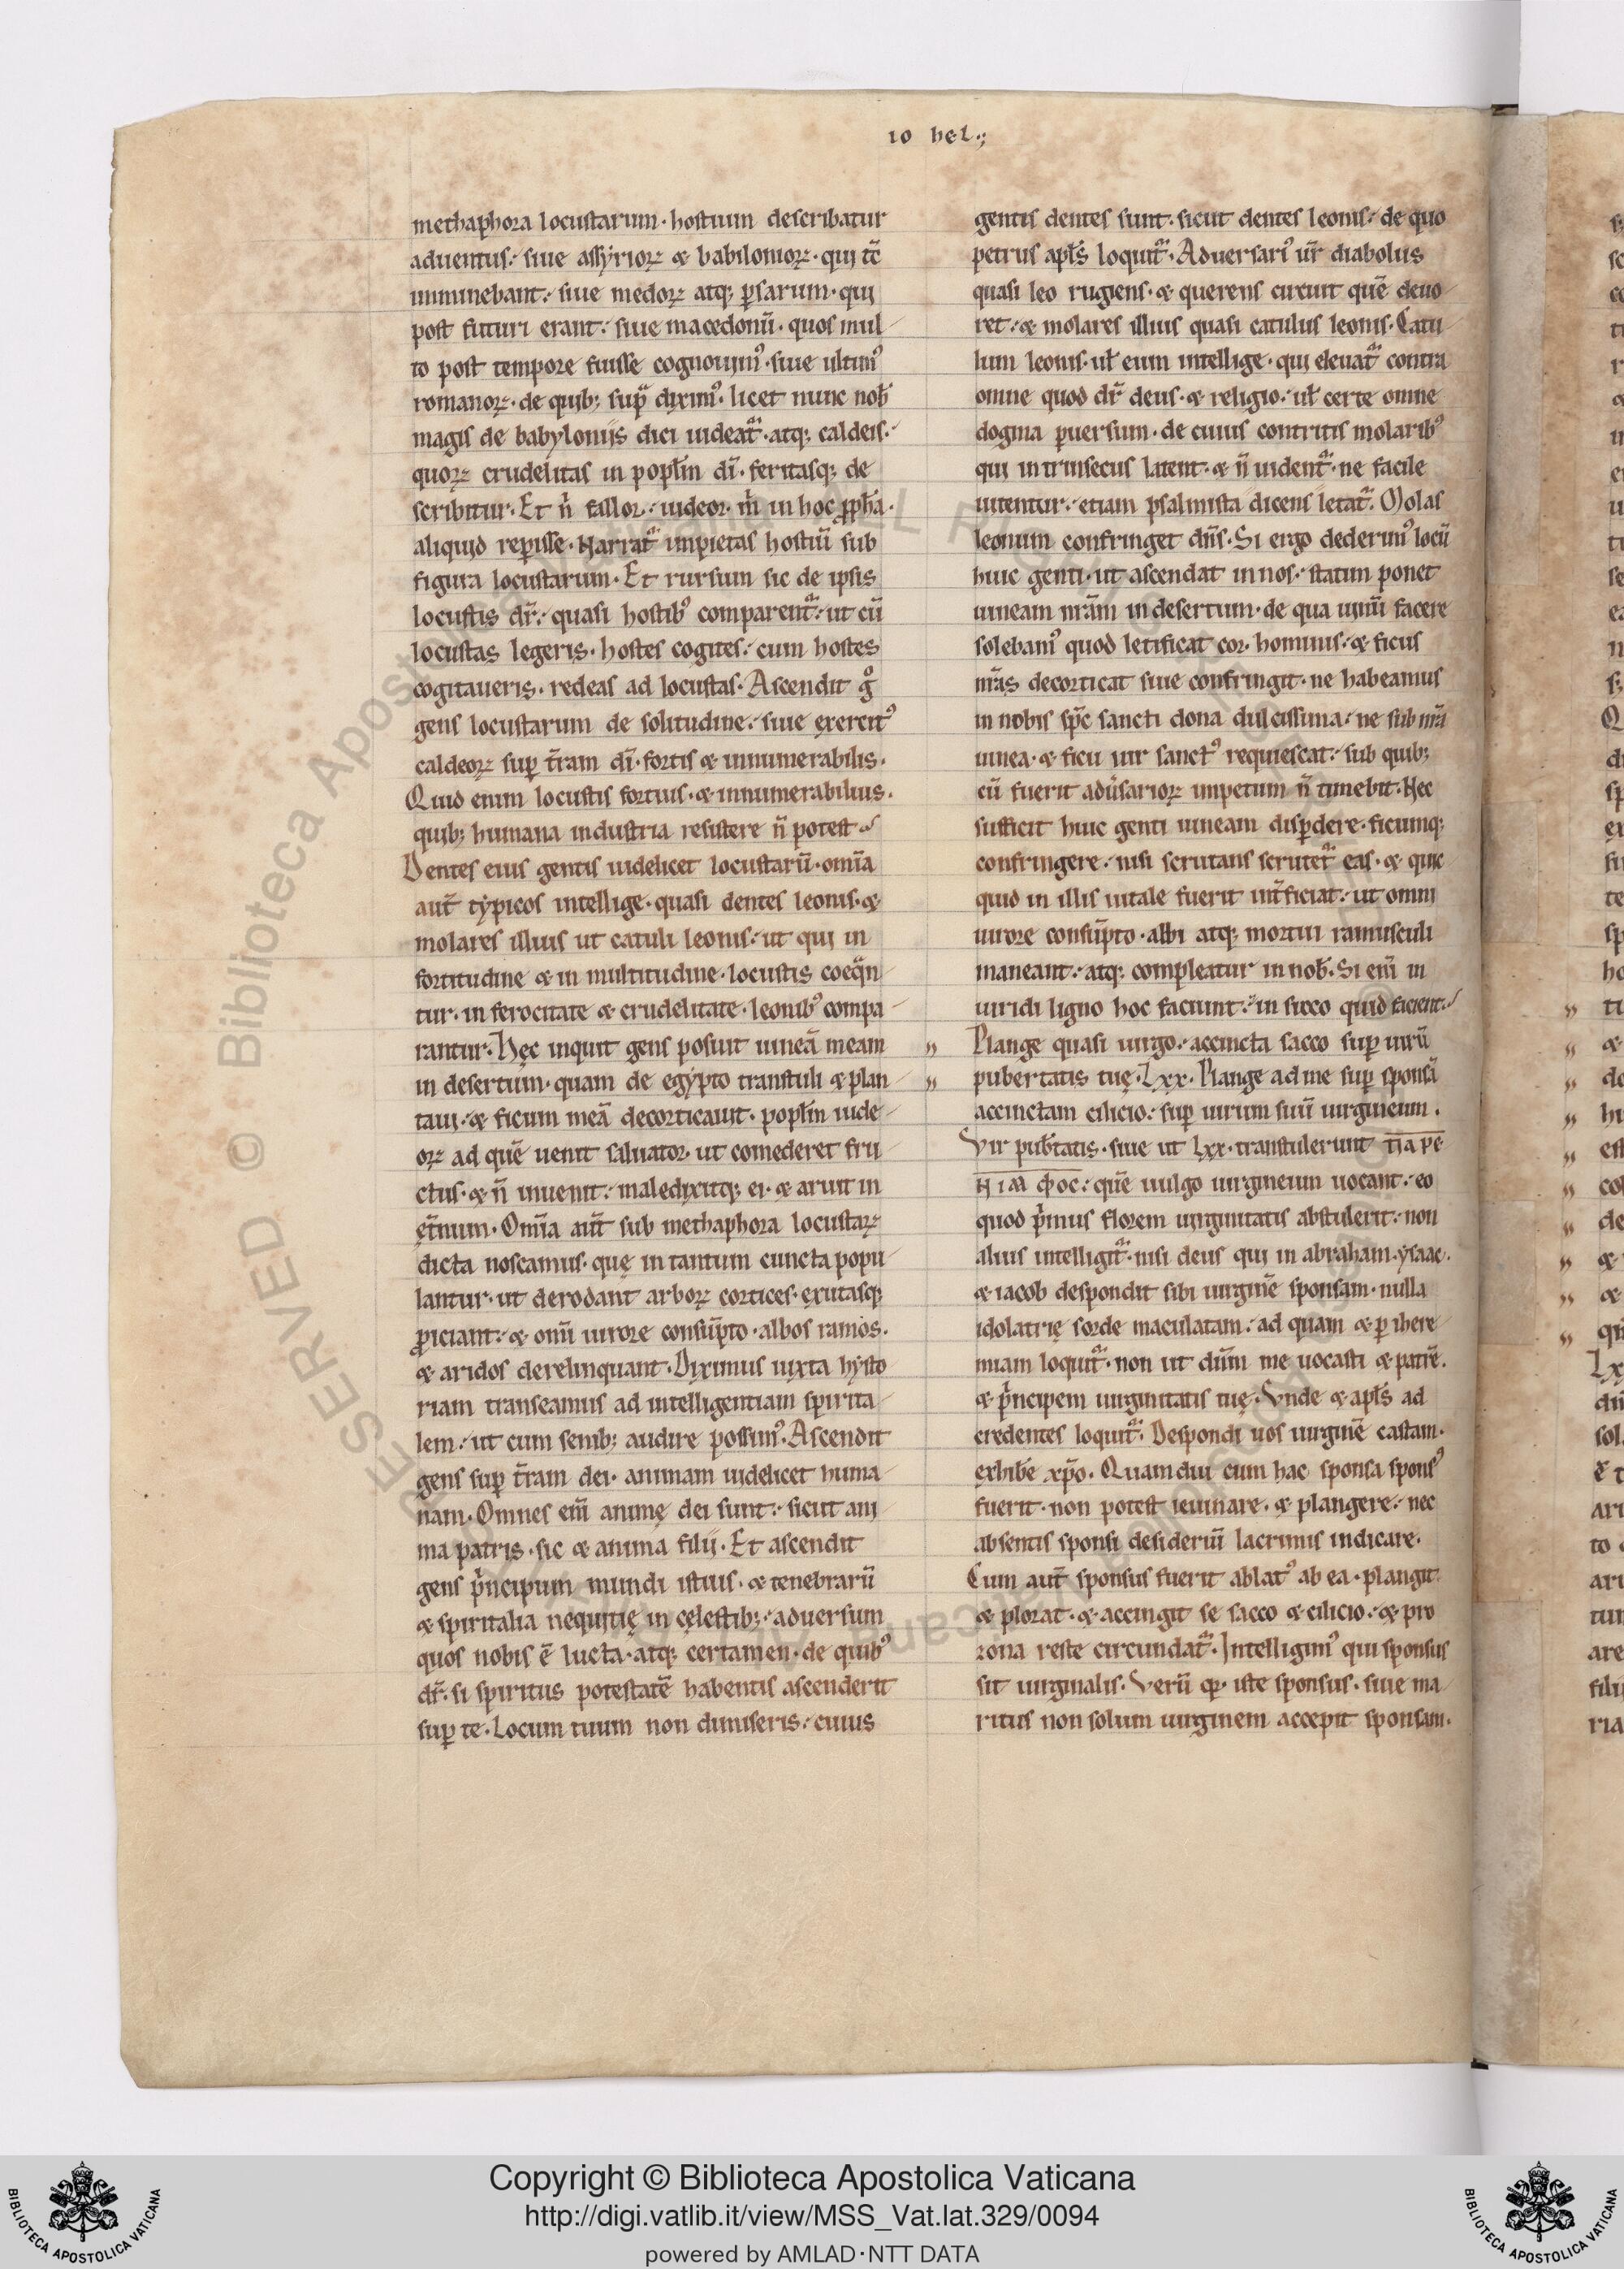 10 hel.;
methaphora locustarum· hostium describatur
aduentus· siue assyrioꝝ & babilonioꝝ· qui tc̄
imminebant· siue medoꝝ atq; ꝑsarum· qui
post futuri erant· siue macedonū· quos mul
to post tempore fuisse cognouimꝰ· siue ultimꝰ
romanoꝝ· de quib; supͣ diximꝰ· licet nunc nob̄
magis de babylonijs dici uideatᷓ· atq; caldeis·
quoꝝ crudelitas in popłm dī· feritasq; de
scribitur· Et n̄ fallor· uideor m̄ in hoc ꝓph̄a·
aliquid reꝑisse· Narratᷓ impietas hostiū sub
figura locustarum· Et rursum sic de ipsis
locustis dr̄· quasi hostibꝰ comparentᷓ· ut cū
locustas legeris· hostes cogites· cum hostes
cogitaueris· redeas ad locustas· Ascendit gͦ
gens locustarum de solitudine· siue exercitꝰ
caldeoꝝ suꝑ t̄ram dī· fortis & innumerabilis·
Quid enim locustis fortius· & innumerabilius·
quib; humana industria resistere n̄ potest·
Dentes eius gentis uidelicet locustarū· omīa
aut̄ typicos intellige· quasi dentes leonis· &
molares illius ut catuli leonis· ut qui in
fortitudine & in multitudine· locustis coeqͣn
tur· in ferocitate & crudelitate· leonibꝰ compa
rantur· Hęc inquit gens posuit uineā meam
in desertum· quam de egypto transtuli & plan
taui· & ficum meā decorticauit· popłm iude
oꝝ ad quē uenit saluator· ut comederet fru
ctus· & n̄ inuenit· maledixitq; ei· & aruit in
ęt̄num· Omīa aut̄ sub methaphora locustaꝝ
dicta noscamus· quę in tantum cuncta popu
lantur· ut derodant arboꝝ cortices· exutasq;
ꝓiciant· & omī uirore consūpto· albos ramos·
& aridos derelinquant· Diximus iuxta hysto
riam transeamus ad intelligentiam spirita
lem· ut cum senib; audire possimꝰ· Ascendit
gens suꝑ t̄ram dei· animam uidelicet huma
nam· Omnes em̄ animę dei sunt· sicut ani
ma patris· sic & anima filij· Et ascendit
gens pͥncipum mundi istius· & tenebrarū
& spiritalia nequitię in cęlestib;· aduersum
quos nobis ē lucta· atq; certamen· de quibꝰ
dr̄· si spiritus potestatē habentis ascenderit
suꝑ te· Locum tuum non dimiseris· cuius
gentis dentes sunt· sicut dentes leonis· de quo
petrus apłs loquitᷓ· Aduersariꝰ ur̄ diabolus
quasi leo rugiens· & querens circuit quē deuo
ret· & molares illius quasi catulus leonis· Catu
lum leonis· uł eum intellige· qui eleuatᷓ contra
omne quod dr̄ deus· & religio· uł certe omne
dogma ꝑuersum· de cuius contritis molaribꝰ
qui intrinsecus latent· & n̄ uidentᷓ· ne facile
uitentur· etiam psalmista dicens letatᷓ· Molas
leonum confringet dn̄s· Si ergo dederimꝰ locū
huic genti· ut ascendat in nos· statim ponet
uineam nr̄am in desertum· de qua uinū facere
solebamꝰ quod letificat cor hominis· & ficus
nr̄as decorticat siue confringit· ne habeamus
in nobis sp̄c sancti dona dulcissima· ne sub nr̄a
uinea· & ficu uir sanctꝰ requiescat· sub quib;
cū fuerit adūsarioꝝ impetum n̄ timebit· Nec
sufficit huic genti uineam disꝑdere· ficumq;
confringere· nisi scrutans scrutetᷓ eas· & quic
quid in illis uitale fuerit int̄ficiat· ut omni
uirore consūpto· albi atq; mortui ramusculi
maneant· atq; compleatur in nob̄· Si em̄ in
uiridi ligno hoc faciunt· in sicco quid facient·
Plange quasi uirgo· accincta sacco suꝑ uirū
pubertatis tuę· Lxx· Plange ad me suꝑ sponsā
accinctam cilicio· suꝑ uirum suū uirgineum·
Vir pub̄tatis· siue ut Lxx· transtulerunt πapε
NIAI ΦOC· quē uulgo uirgineum uocant· eo
quod pͥmus florem uirginitatis abstulerit· non
alius intelligitᷓ· nisi deus qui in abraham· ysaac·
& iacob despondit sibi uirginē sponsam· nulla
idolatrię sorde maculatam· ad quam & ꝑ ihere
miam loquitᷓ· non ut dūm me uocasti & patrē·
& pͥncipem uirginitatis tuę· Vnde & apłs ad
credentes loquitᷓ· Despondi uos uirginē castam·
exhib̄e xp̄o· Quamdiu cum hac sponsa sponsꝰ
fuerit· non potest ieiunare· & plangere· nec
absentis sponsi desideriū lacrimis indicare·
Cum aut̄ sponsus fuerit ablatꝰ ab ea· plangit
& plorat· & accingit se sacco & cilicio· & pro
zona reste circundatᷓ· Intelligimꝰ qui sponsus
sit uirginalis· Verū qꝫ iste sponsus· siue ma
ritus non solum uirginem accepit sponsam·
Copyright © Biblioteca Apostolica Vaticana
http://digi.vatlib.it/view/MSS_Vat.lat.329/0094
powered by AMLAD·NTT DATA